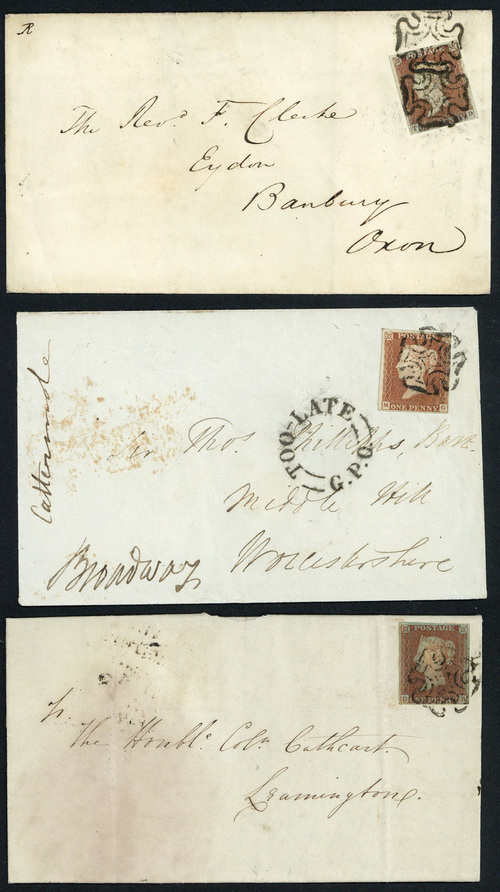 R
The Revd F. Clerke
Eydon
Banbury
Oxon
POSTAGE
M G
ONE PENNY
TOO-LATE
G.P.O
Cattermole
Sir Thos. Phillipps, Bart.
Middle Hill
Broadway
Worcestershire
POSTAGE
ONE PENNY
To
The Honble. Coln. Cathcart.
Leamington.